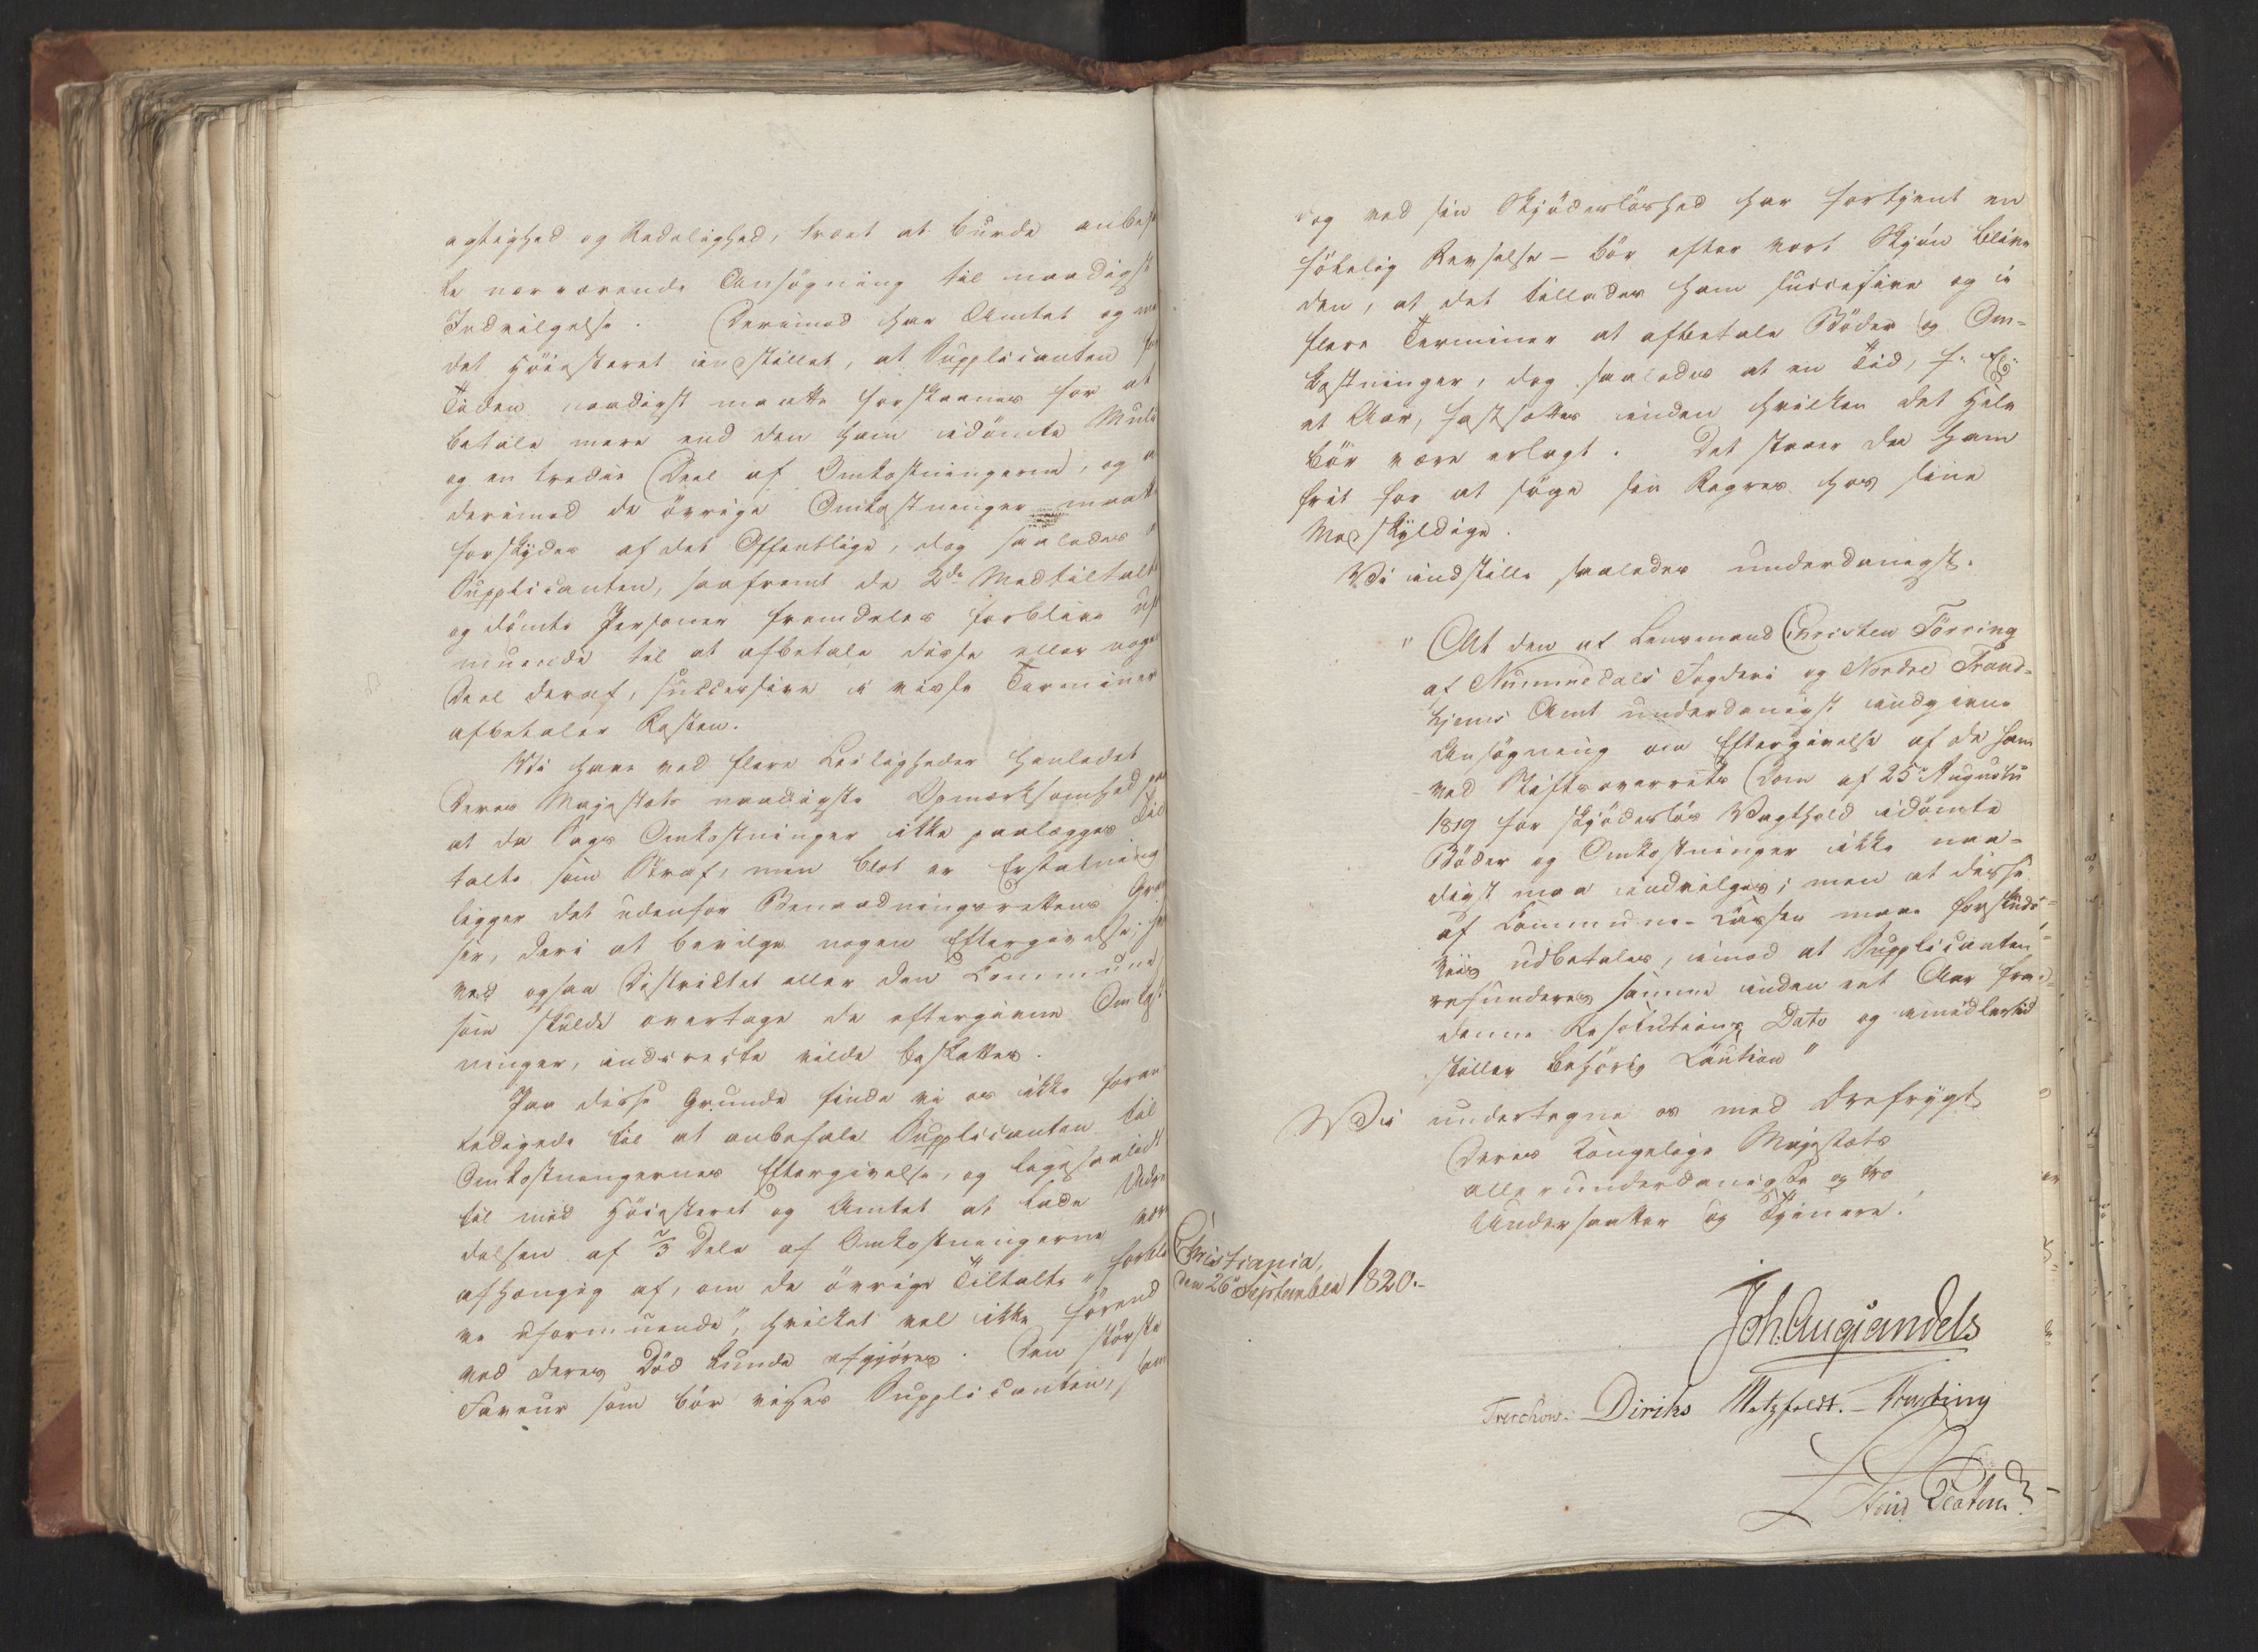 agtighed og Redelighed, troet at burde anbefa
le nærværende Ansøgning til naadigst
Indvilgelse. Derimod har Amtet og me
det Höiesteret indstillet, at Supplicanten for
Tiden naadigst maatte forskaanes for at
betale mere end den ham idömte Mulct
og en tredie Deel af Omkostningerne, og a
derimod de övrige Omkostninger maatte
forskydes af det Offentlige, dog saaledes a
Supplicanten, saafremt de 2de Medtiltalte
og dömte Personer fremdeles forblive ufor
muende til at afbetale disse eller noge
Deel deraf, successive i visse Terminer
afbetaler Resten.
Vi have ved flere Leiligheder henledet
Deres Majestæts naadigste Opmærksomhed paa
at da Sags Omkostninger ikke paalægges Til
talte som Straf, men blot er Erstatning
ligger det udenfor Benaadningsrettens Græn
ser, deri at bevilge nogen Eftergivelse, her
ved ogsaa Districtet eller den Commune,
som skulde overtage de eftergivne Omkost
ninger, indirecte vilde beskattes.
Paa disse Grunde finde vi os ikke foran
ledigede til at anbefale Supplicanten til
Omkostningernes Eftergivelse, og ligesaalidt
til med Höiesteret og Amtet at lade Udre
delsen af 2/3 Dele af Omkostningerne være
afhængig af, om de övrige Tiltalte "forbli
ve uformuende", hvilket vel ikke förend
ved deres Död kunde afgjöres. Den störste
Faveur som bör vises Supplicanten, som
dog ved sin Skjödeslöshed har fortjent en
følelig Revselse - bör efter vort Skjön blive
den, at det tillades ham successive og i
flere Terminer at afbetale Böder og Om-
kostninger, dog saaledes at en Tid, f. Ex.
et Aar, fastsættes inden hvilken det Hele
bör være erlagt. Det staaer da ham
frit for at söge sin Regres hos sine
Medskyldige.
Vi indstille saaledes underdanigst.
"At den af Lensmand Christen Törring
af Nummedals Fogderi og Nordre Trond-
hjems Amt underdanigst indgivne
Ansögning om Eftergivelse af de ham
ved Stiftsoverrets Dom af 25de Augustii
1819 for skjödeslös Vagthold idömte
Böder og Omkostninger ikke naa-
digst maa indvilges; men at disse
af Commune-Cassen maae forskuds-
viis udbetales, imod at Supplicanten
refunderer samme inden eet Aar fra
denne Resolutions Dato og imidlertid
stiller behörig Caution"
Vi undertegne os med Ærefrygt
Deres Kongelige Majestæts
allerunderdanigste og tro
Undersaatter og Tjenere.
Christiania,
den 26de September 1820.-
Joh. Aug. Sandels
Treschow. Diriks Motzfeldt. - Krebting